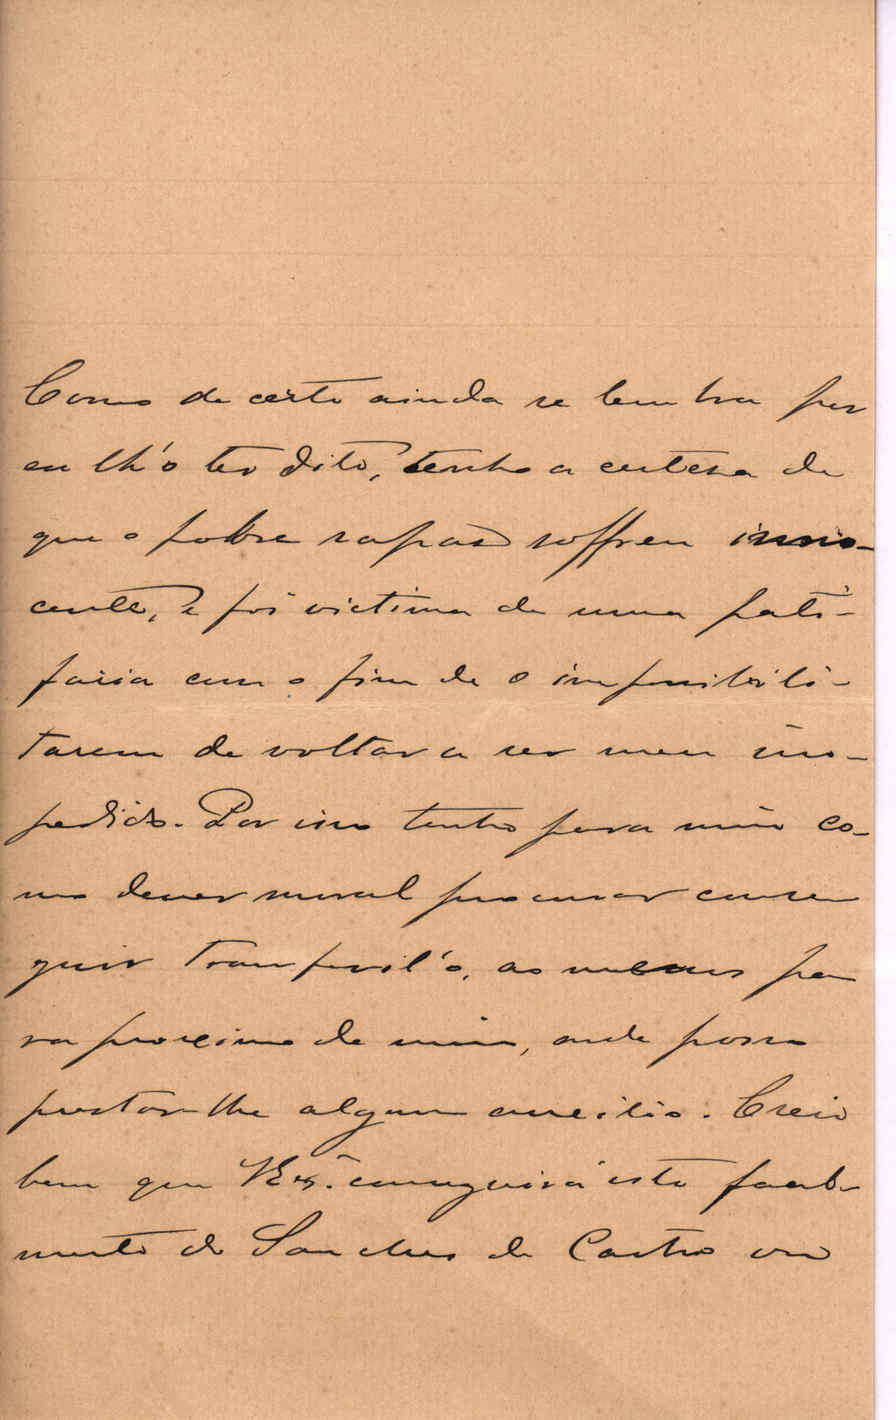 Como de certo ainda se lembra por
eu lh'o ter dito, tenho a certesa de
que o pobre rapaz soffreu inno-
cente, e foi victima de uma pati-
faria com o fim de o impossibili-
tarem de voltar a ser meu im-
pedido. Por isso tenho para mim co-
mo dever moral procurar conse
guir transferil'o, ao menos pa
ra proximo de mim, onde possa
prestar-lhe algum auxilio. Creio
bem que VExª. conseguirá isto facil-
mente do Sanches de Castro ou